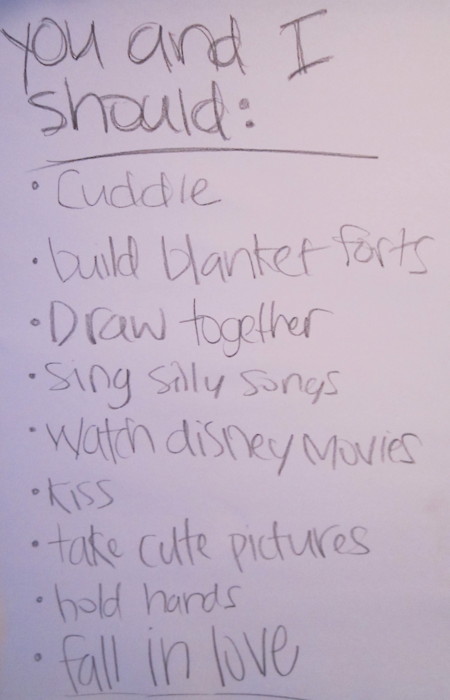 you and I
should:
• Cuddle
• build blanket forts
• Draw together
• Sing silly songs
• Watch disney Movies
• kiss
• take cute pictures
• hold hands
• fall in love